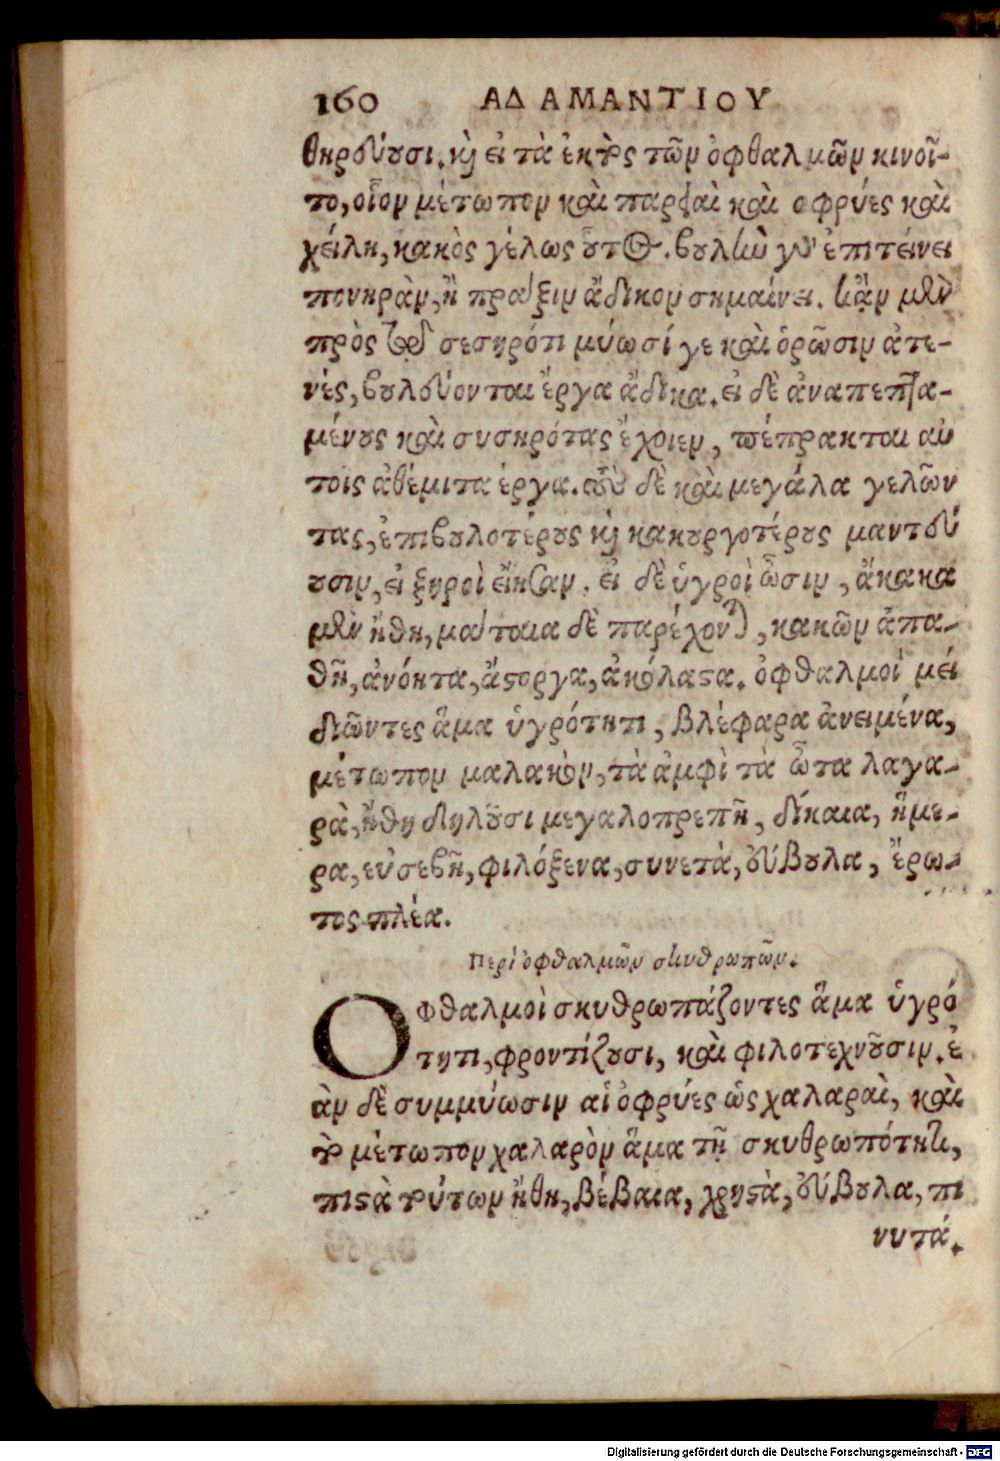 160 ΑΔΑΜΑΝΤΙΟΥ
θηρεύουσι. καὶ εἰ τὰ ἐκτὸς τῶν ὀφθαλμῶν κινοῖ-
το, οἷον μέτωπον καὶ παρειαὶ καὶ οφρύες καὶ
χείλη, κακὸς γέλως οὗτος. βουλὴν γὰρ ἐπιτείνει
πονηρὰν, ἢ πρᾶξιν ἄδικον σημαίνει. ἐὰν μὲν
πρὸς τῷ σεσηρότι μύωσί γε καὶ ὁρῶσιν ἀτε-
νὲς, βουλεύονται ἔργα ἄδικα. εἰ δὲ ἀναπεπτα-
μένους καὶ συσηρότας ἔχοιεν, πέπρακται αυ
τοῖς ἀθέμιτα έργα. τοὺς δὲ καὶ μεγάλα γελῶν
τας, ἐπιβουλοτέρους καὶ κακουργοτέρους μαντεύ
ουσιν, εἰ ξηροὶ εἴησαν. εἰ δὲ ὑγροὶ ὦσιν, ἄκακα
μὲν ἤθη, μάταια δὲ παρέχονται, κακῶν ἀπα-
θῆ, ἀνόητα, ἄστοργα, ἀκόλαστα. ὀφθαλμοὶ μει
διῶντες ἅμα ὑγρότητι, βλέφαρα ἀνειμένα,
μέτωπον μαλακὸν, τὰ ἀμφὶ τὰ ὦτα λαγα-
ρὰ, ἤθη δηλοῦσι μεγαλοπρεπῆ, δίκαια, ἥμε-
ρα, εὐσεβῆ, φιλόξενα, συνετὰ, εὔβουλα, ἔρω-
τος πλέα.
Περὶ ὀφθαλμῶν σκυθρωπῶν.
Οφθαλμοὶ σκυθρωπάζοντες ἅμα ὑγρό
τητι, φροντίζουσι, καὶ φιλοτεχνοῦσιν. ἐ
ὰν δὲ συμμύωσιν αἱ ὀφρύες ὡς χαλαραὶ, καὶ
τὸ μέτωπον χαλαρὸν ἅμα τῇ σκυθρωπότητι,
πιστὰ τούτων ἤθη, βέβαια, χρηστὰ, εὔβουλα, πι
νυτά.
Digitalisierung gefördert durch die Deutsche Forschungsgemeinschaft - DFG